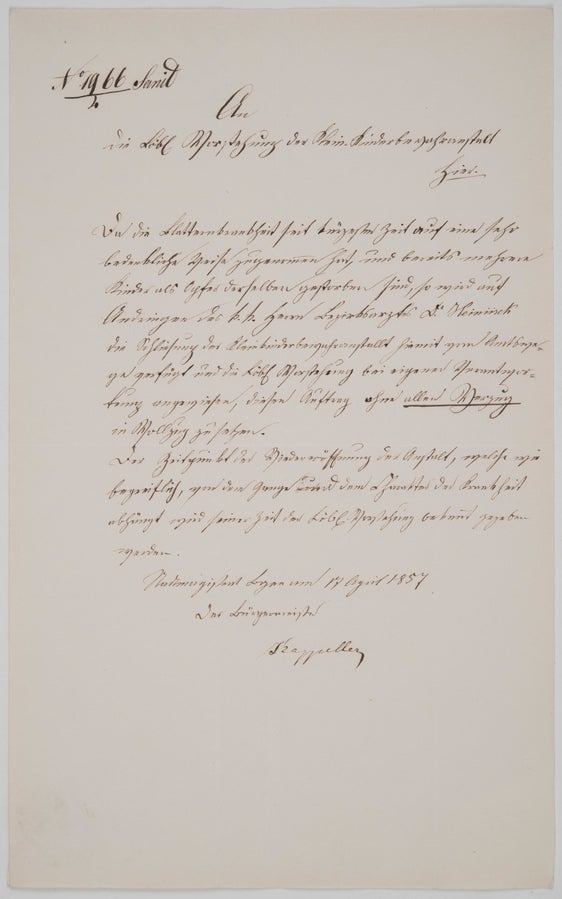 No 1966 Sanit
2
An
die Löbl. Vorstehung der Klein-Kinderbewahranstalt
Hier.
Da die Blatternkrankheit seit kürzester Zeit auf eine sehr
bedenkliche Weise zugenommen hat, und bereits mehrere
Kinder als Opfer derselben gestorben sind, so wird auf
Andringen des k. k. Herrn Bezirksarztes Dr
die Schließung der Kleinkinderbewahranstallt hiemit von Amtswe-
ge verfügt und die Löbl. Vorstehung bei eigener Verantwor-
tung angewiesen, diesen Auftrag ohne allen Verzug
in Vollzug zu setzen.
Der Zeitpunkt der Wiedereröffnung der Anstalt, welche wie
begreiflich, von dem Gange und dem Charakter der Krankheit
abhängt wird seiner Zeit der Löbl. Vorstehung bekannt gegeben
werden.
Stadtmagistrat Bozen am 17 April 1857
Der Bürgermeister
Kappeller